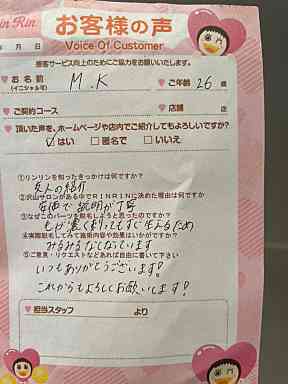 in Rin
お客様の声
Voice Of Customer
年 月 日
接客サービス向上のためにご協力をお願いいたします。
お名前 M.K ご年齢 26 歳
(イニシャル可)
ご契約コース 店舗 店
頂いた声を、ホームページや店内でご紹介してもよろしいですか?
☑はい □匿名で □いいえ
①リンリンを知ったきっかけは何ですか?
友人の紹介
②沢山サロンがある中でRINRINに決めた理由は何ですか
安価で説明が丁寧
③なぜこのパーツを脱毛しようと思ったのですか?
毛が濃く剃ってもすぐ生えるため
④実際脱毛してみて施術内容や効果はいかがですか?
みるみるなくなっています
⑤ご意見・リクエストなどあれば自由に書いて下さい
いつもありがとうございます!
これからもよろしくお願いします!
担当スタッフ より